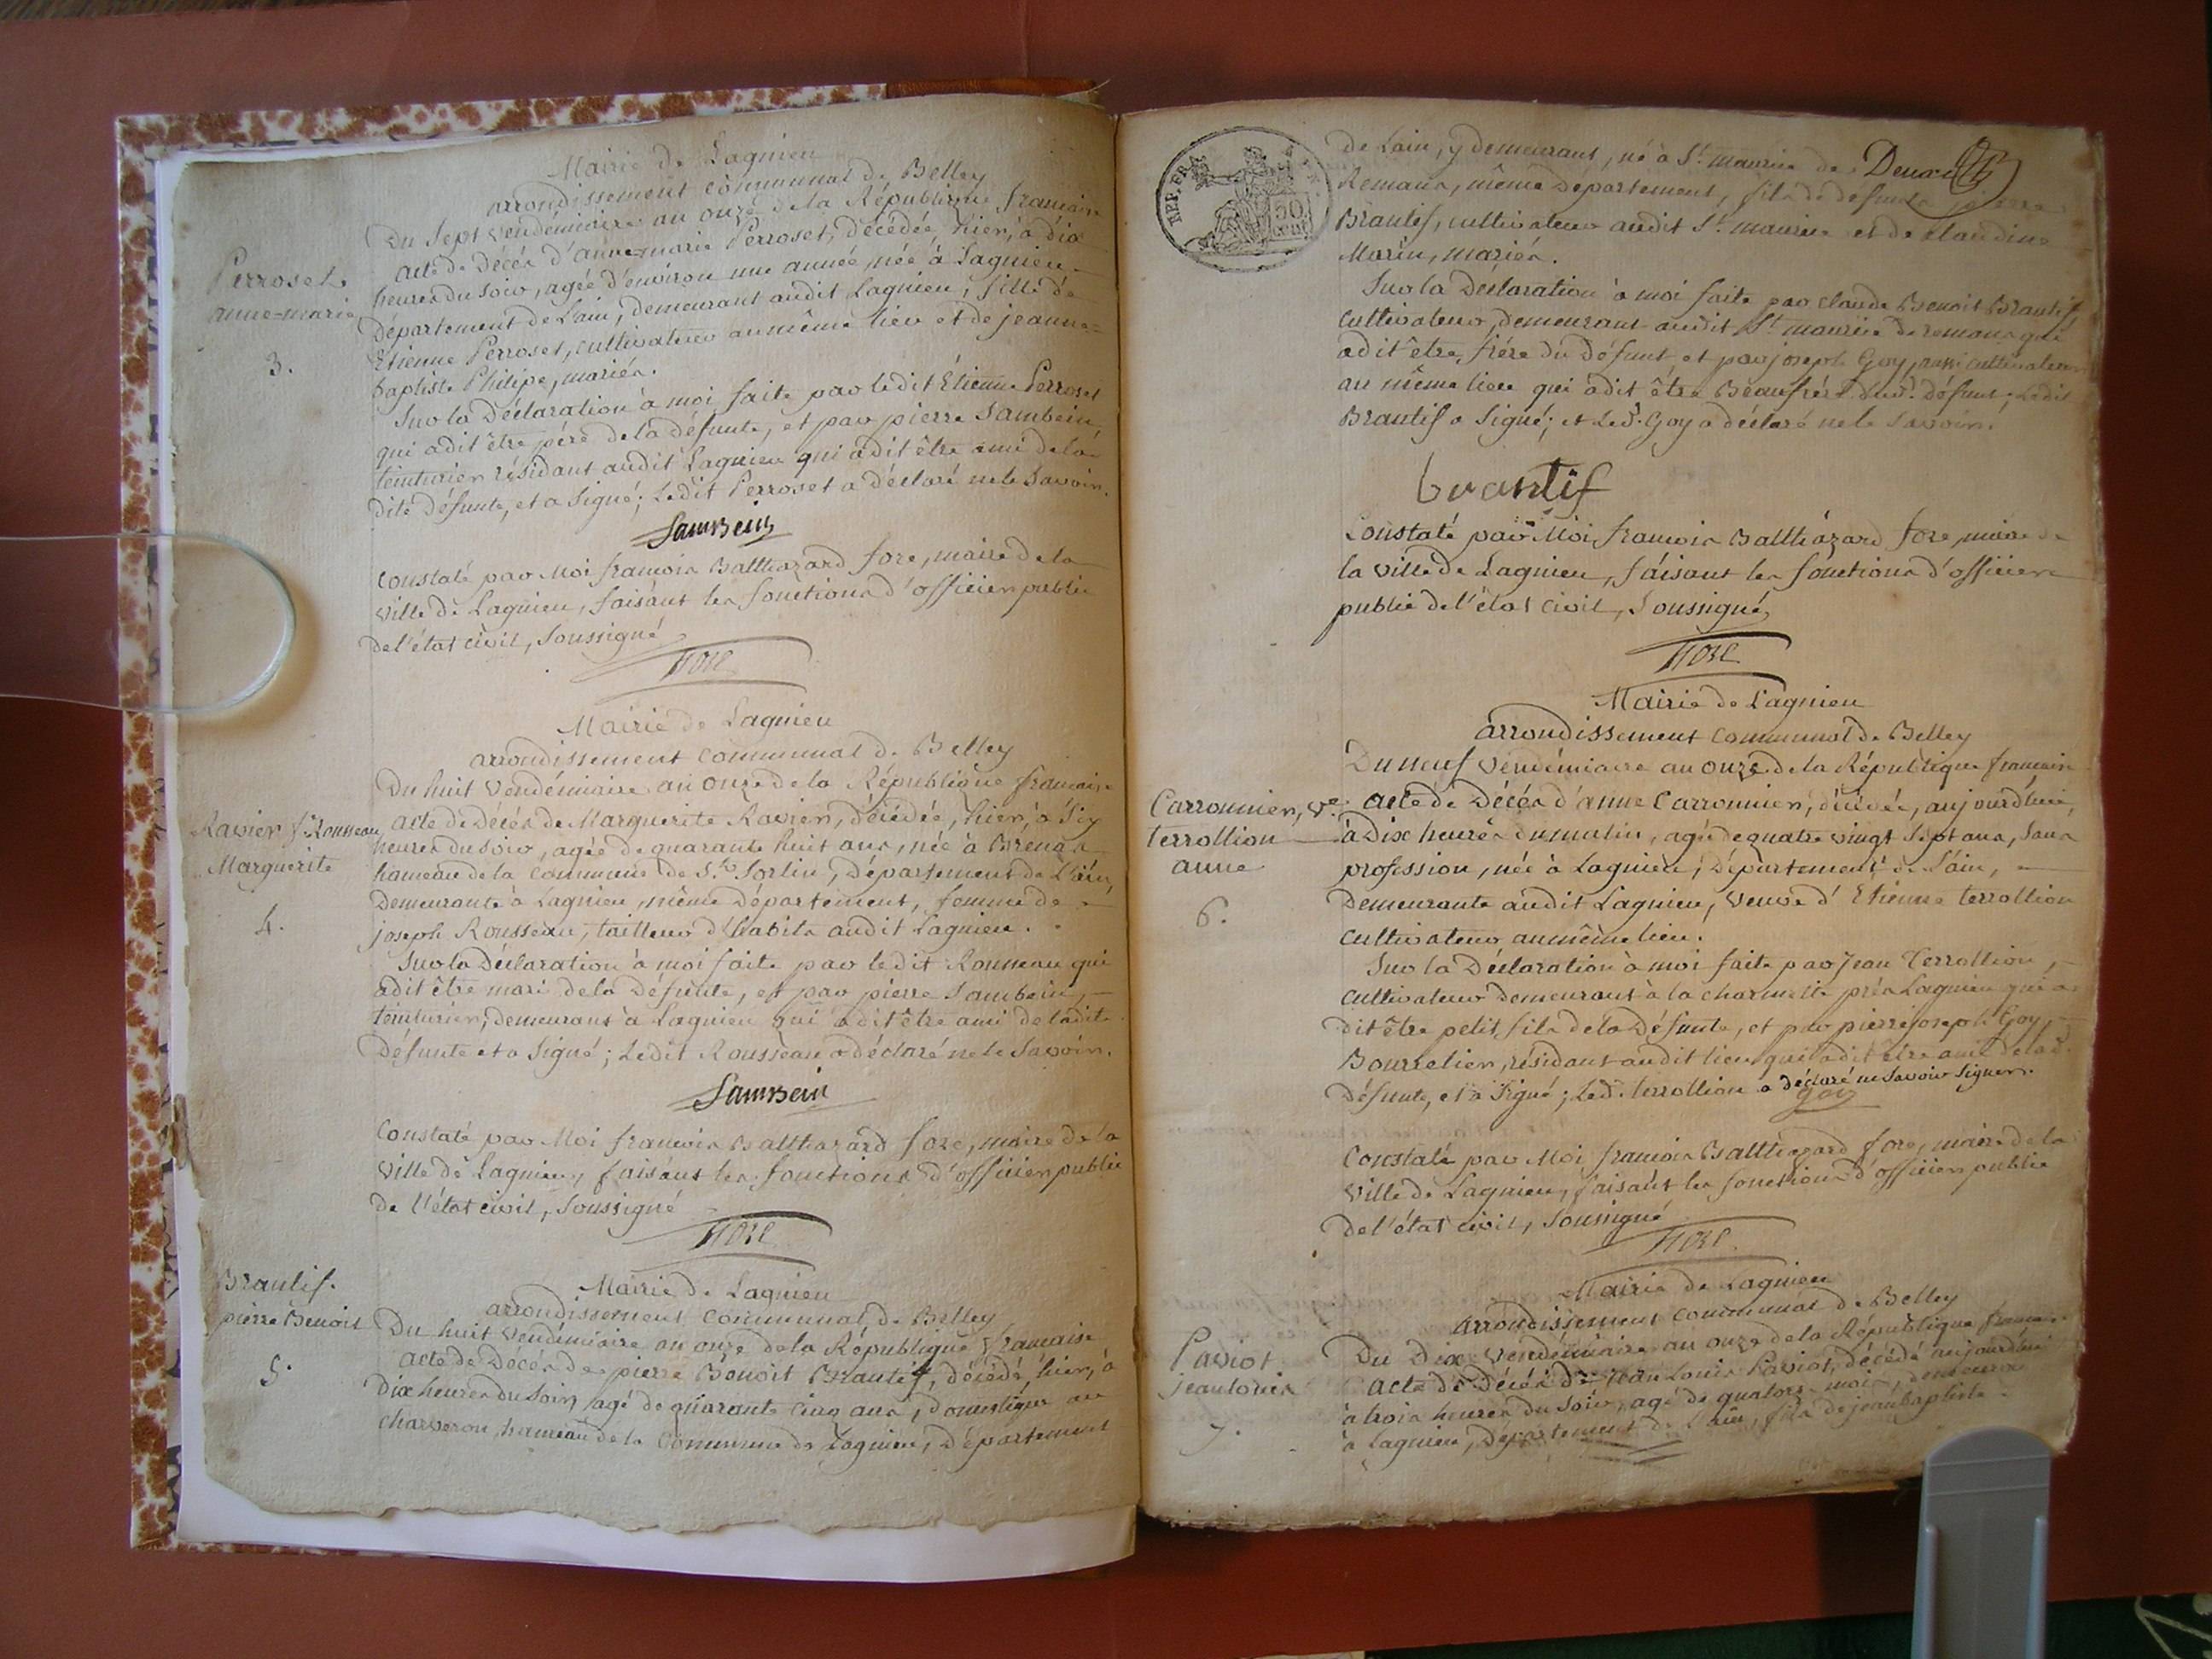 Mairie de Lagnieu
arrondissement communal de Belley
Du Sept vendémiaire an onze de la République française
Perroset
anne-marie
3.
acte de décès d'anne-marie Perroset, décédée, hier, à dix
heures du soir, agée d'environ une année, née à Lagnieu
département de Lain, demeurant audit Lagnieu, fille de
Etienne Perroset, cultivateur au même lieu et de jeanne=
baptiste Philipe, mariés.
Sur la Déclaration à moi faite par ledit Etienne Perroset
qui a dit être père de la défunte, et par pierre Sambein,
teinturier résidant audit Lagnieu qui a dit être ami de la
dite défunte, et a Signé; Ledit Perroset a déclaré ne le Savoir.
Sambein
Constaté par Moi françois Balthazard fore, maire de la
ville de Lagnieu, faisant les fonctions d'officier public
de l'état civil, Soussigné
fore
Mairie de Lagnieu
arrondissement communal de Belley
Du huit Vendémiaire an onze de la République française
Ravier f. Rousseau
Marguerite
4.
acte de Décès de Marguerite Ravier, décédée, hier, à Six
heures du soir, agée de quarante huit ans, née à Brenas
hameau de la commune de St. Sorlin, Département de L'ain,
Demeurante à Lagnieu, même département, femme de
joseph Rousseau, tailleur d'habits audit Lagnieu.
Sur la Déclaration à moi faite par ledit Rousseau qui
a dit être mari de la Défunte, et par pierre Sambein,
teinturier, demeurant à Lagnieu qui a dit être ami de ladite
Défunte et a Signé; Ledit Rousseau a déclaré ne le Savoir.
Sambein
Constaté par Moi françois Balthazard fore, maire de la
ville de Lagnieu, faisant les fonctions d'officier public
de l'état civil, Soussigné
fore
Mairie de Lagnieu
arrondissement communal de Belley
Brantif.
pierre Benoit
5.
Du huit Vendémiaire an onze de la République française
acte de Décès de pierre Benoit Brantif, décédé, hier, à
Dix heures du Soir, agé de quarante cinq ans, domestique au
charveron, hameau de la Commune de Lagnieu, Département
REP. FRA.
50
cent.
de Lain, y demeurant, né à St. maurice de Deux
Remans, même Département, fils de défunts pierre
Brantif, cultivateur audit St. maurice et de Claudine
Marin, mariés.
Sur la Déclaration à moi faite par claude Benoit Brantif,
cultivateur, demeurant audit St. maurice de remans qui
a dit être, frère du défunt et par joseph Goy, aussi cultivateur
au même lieu qui a dit être Beaufrère dud. défunt; Ledit
Brantif a Signé; et Led. Goy a déclaré ne le Savoir.
brantif
Constaté par Moi, françois Balthazard fore, maire de
la ville de Lagnieu, faisant les fonctions d'officier
public de l'état civil, Soussigné,
fore
Mairie de Lagnieu
arrondissement communal de Belley
Du neuf Vendémiaire an onze de la République française
Carronnier, ve.
terrollion
anne
6.
acte de Décès d'anne Carronnier, décédée, aujourd'hui,
à Dix heures du matin, agée de quatre vingt Sept ans, Sans
profession, née à Lagnieu, Département de Lain,
Demeurante audit Lagnieu, veuve d'Etienne terrollion
cultivateur au même lieu.
Sur la Déclaration à moi faite par Jean Terrollion,
cultivateur demeurant à la charmette près Lagnieu qui a
dit être petit fils de la Défunte, et par pierre joseph Goy,
Bourrelier, résidant audit lieu qui a dit être ami de lad.
Défunte, et a Signé; Led. terrollion a déclaré ne Savoir Signer.
Goy
Constaté par Moi françois Balthazard fore, maire de la
ville de Lagnieu, faisant les fonctions d'officier public
de l'état civil, Soussigné
fore
Mairie de Lagnieu
arrondissement communal de Belley
Paviot
jean louis
7.
Du Dix Vendémiaire an onze de la République française
acte de Décès de jean Louis Paviot, décédé aujourd'hui
à trois heures du Soir, agé de quatorze mois, demeurant
à Lagnieu, Département de l'ain, fils de jean baptiste